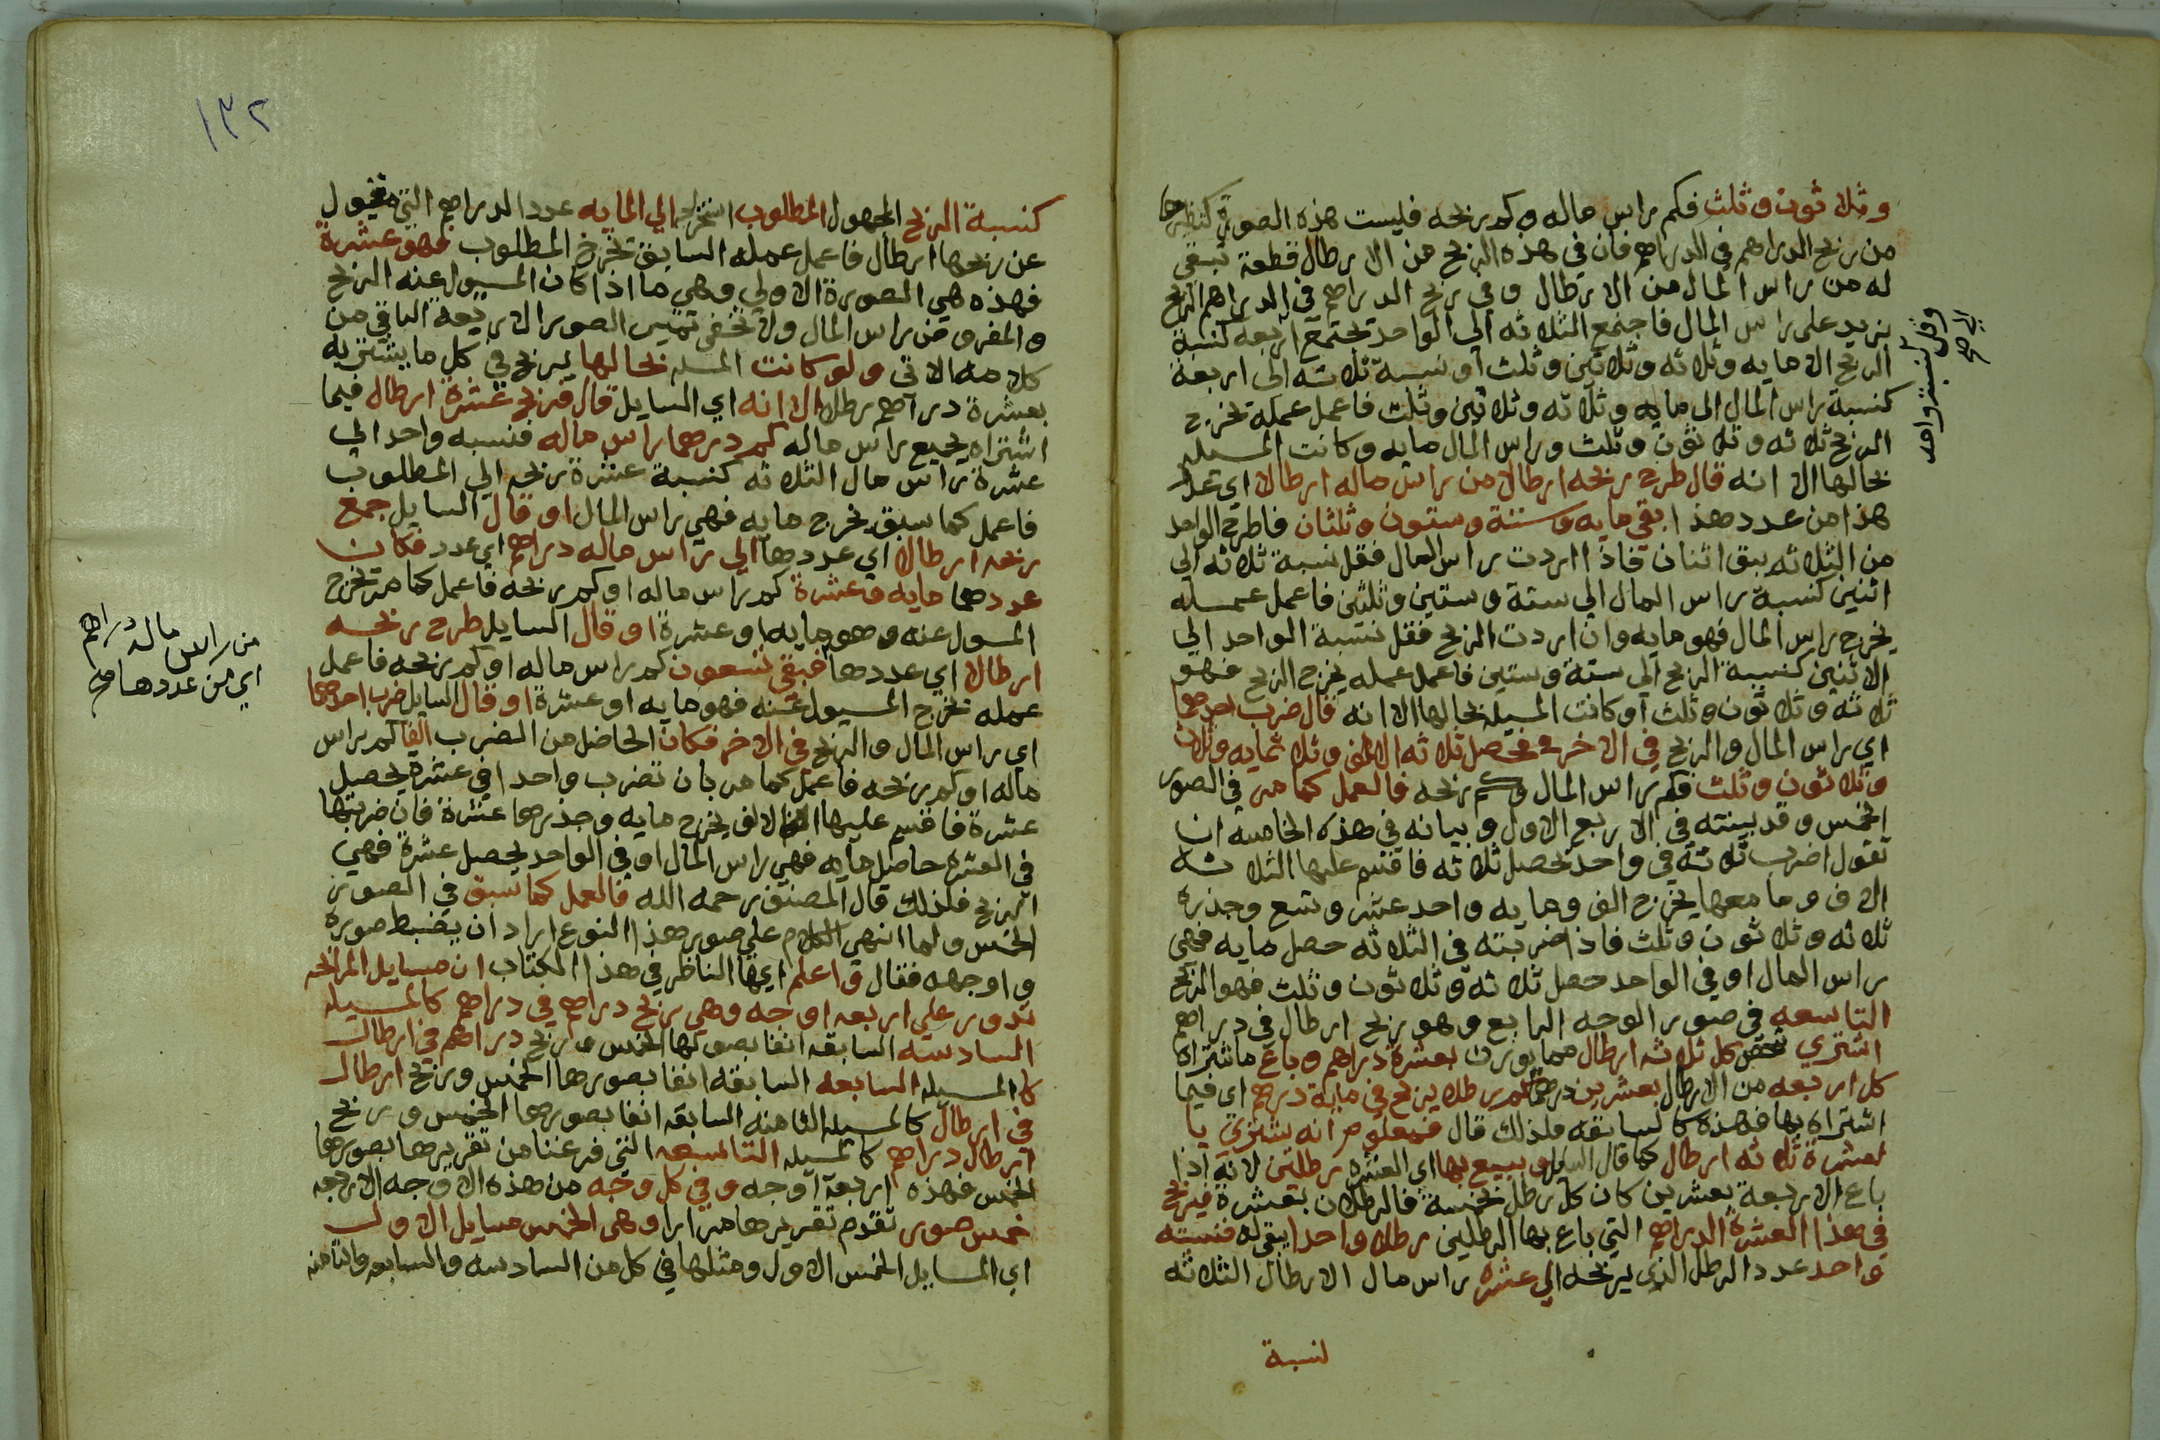 وثلاثون وثلث فكم راس ماله وكم ربحه فليست هذه الصورة كنظيرها
من ربح الدراهم في الدراهم فان في هذه الربح من الارطال قطعة تبقى
له من راس المال من الارطال وفي ربح الدراهم في الدراهم الربح
يزيد على راس المال فاجمع الثلاثه الى الواحد تجتمع اربعه كنسبة
الربح الا مايه وثلاثه وثلاثين وثلث او نسبة ثلاثه الى اربعة
كنسبة راس المال الى مايه وثلاثه وثلاثين وثلث فاعمل عمله تخرج
الربح ثلاثه وثلاثون وثلث وراس المال مايه وكانت المسيله
بحالها الا انه قال طرح ربحه ارطالا من راس ماله ارطالا اي عدد
هذا من عدد هذا بقي مايه وستة وستون وثلثان فاطرح الواحد
من الثلاثه يبق اثنان فاذا اردت راس المال فقل نسبة ثلاثه الي
اثنين كنسبة راس المال الي ستة وستين وثلثين فاعمل عمله
يخرج راس المال فهو مايه وان اردت الربح فقل نسبة الواحد الي
الاثنين كنسبة الربح الى ستة وستين فاعمل عمله يخرج الربح فهو
ثلاثه وثلاثون وثلث او كانت المسيله بحالها الا انه قال ضرب احدهما
اي راس المال والربح في الاخر فحصل ثلاثه الاف وثلاثمايه وثلاث
وثلاثون وثلث فكم راس المال وكم ربحه فالعمل كما مر في الصور
الخمس وقد بينته في الاربع الاول وبيانه في هذه الخامسه ان
تقول اضرب ثلاثة في واحد تحصل ثلاثه فاقسم عليها الثلاثه
الاف وما معها يخرج الف ومايه واحد عشر وتسع وجذره
ثلاثه وثلاثون وثلث فاذا ضربته في الثلاثه حصل مايه فهي
راس المال او في الواحد حصل ثلاثه وثلاثون وثلث فهو الربح
التاسعه في صور الوجه الرابع وهو ربح ارطال في دراهم
اشتري شخص كل ثلاثه ارطال مما يوزن بعشرة دراهم وباع ما اشتراه
كل اربعه من الارطال بعشرين درهما كم رطلا يربح في مائة درهم اي فيما
اشتراه بها فهذه كالسابقه فلذلك قال فمعلوم انه يشتري با
لعشرة ثلاثه ارطال كما قال السايل ويبيع بها اي العشره رطلين لانه اذا
باع الاربعة بعشرين كان كل رطل بخمسة فالرطلان بعشرة فيربح
في هذا العشرة الدراهم التي باع بها الرطلين رطلا واحدا يبقى له فنسبته
واحد عدد الرطل الذي يربحه الي عشره راس مال الارطال الثلاثه
لنسبة
وقل نسبة واحد
الي صح
١٣٢
كنسبة الربح المجهول المطلوب استخراجه الي المايه عدد الدراهم التي
عن ربحها ارطال فاعمل عمله السابق تخرج المطلوب فهو عشرة
فهذه هي الصورة الاولي وهي ما اذا كان المسيول عنه الربح
والمفروض راس المال ولا تخفى تميز الصور الاربعة الباقي من
كلامه الاتي ولو كانت المسله بحالها يربح في كل ما يشتريه
بعشرة دراهم رطلا الا انه اي السايل قال فربح عشرة ارطال فيما
اشتراه بجميع راس ماله كم درهما راس ماله فنسبه واحد الي
عشرة راس مال الثلاثه كنسبة عشرة ربحه الي المطلوب
فاعمل كما سبق يخرج مايه فهي راس المال او قال السايل جمع
ربحه ارطالا اي عددها الي راس ماله دراهم اي عدد فكان
عددهما مايه وعشرة كم راس ماله او كم ربحه فاعمل كما مر تخرج
المسول عنه وهو مايه او عشرة او قال السايل طرح ربحه
ارطالا اي عددها فبقي تسعون كم راس ماله او كم ربحه فاعمل
عمله تخرج المسيول عنه فهو مايه او عشرة او قال السايل ضرب احدهما
اي راس المال والربح في الاخر فكان الحاصل من الضرب الفا كم راس
ماله او كم ربحه فاعمل كما مر بان تضرب واحدا في عشرة يحصل
عشرة فاقسم عليها الالف يخرج مايه وجذرها عشرة فان ضربتها
في العشره حاصل مايه فهي راس المال او في الواحد يحصل عشرة فهي
الربح فلذلك قال المصنف رحمه الله فالعمل كما سبق في الصور
الخمس ولما انهى الكلام على صور هذا النوع اراد ان يضبط صوره
واوجهه فقال واعلم ايها الناظر في هذا الكتاب ان مسايل المرابحه
تدور علي اربعه اوجه وهي ربح دراهم في دراهم كالمسيله
السادسه السابقه انفا بصورها الخمس وربح دراهم في ارطال
كالمسيله السابعه السابقه انفا بصورها الخمس وربح ارطال
في ارطال كالمسيله الثامنه السابقه انفا بصورها الخمس وربح
ارطال دراهم كالمسيله التاسعه التي فرغنا من تقريرها بصورها
الخمس فهذه اربعة اوجه وفي كل وجه من هذه الاوجه الاربعه
خمس صور تقدم تقريرها مرارا وهي الخمس مسايل الاول
اي المسايل الخمس الاول ومثلها في كل من السادسه والسابعه والثامنه
من راس ماله دراهم
اي من عددها صح